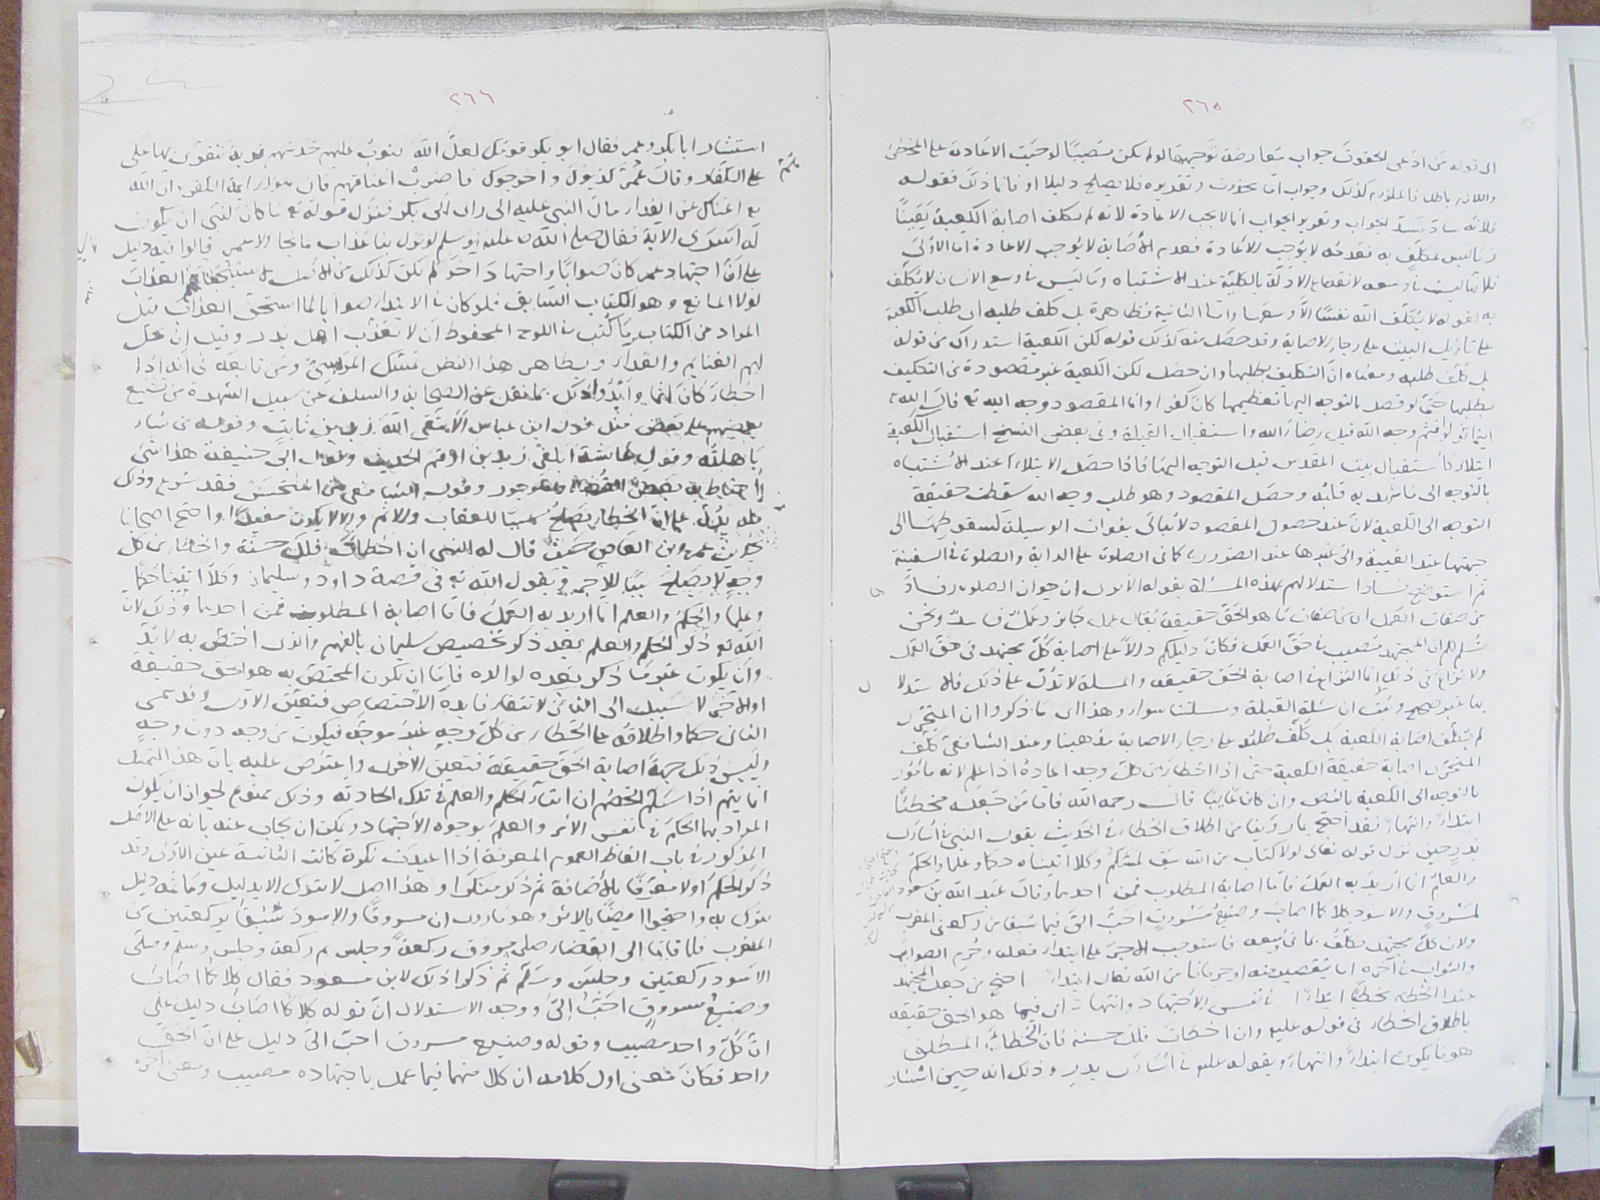 ٢٦٥
الى قوله من ادعى لحقوق جواب معارضة توجيهها لو لم يكن مصيبا لوجبت الاعادة على المخطئ
واللازم باطل فالملزوم كذلك وجواب وتقديره فلا يصلح دليلا اونقول
فلانه ساد مسد الجواب وتقرير الجواب انما لا يجب الاعادة لانه لم يكلف اصابة الكعبة يقينا
وما ليس بمكلف به فقدمه لا يوجب الاعادة فعدم الاصابة لا يوجب الاعادة اما الاولى
فلانها ليست في وسعه لانقطاع الادلة بالكلية عند الاشتباه وما ليس في وسع الانسان لا يكلف
به لقوله لا يكلف الله نفسا الا وسعها واما الثانية فظاهرة بل كلف طلبه اى طلب الكعبة
على تأويل البيت على رجاء الاصابة وقد حصل منه لذلك قوله لكن الكعبة استدراك من قوله
بل كلف طلبه ومعناه ان التكليف بطلبها وان حصل لكن الكعبة غير مقصودة من التكليف
بطلبها حتى لو قصد بالتوجه اليها تعظيمها كان كفرا وانما المقصود وجه الله تع قال الله تع
اينما تولوا فثم وجه الله قبل رضاء الله واستقبال القبلة وفى بعض النسخ استقبال الكعبة
ابتلاء كاستقبال بيت المقدس قبل التوجه اليها فاذا حصل الابتلاء عند الاشتباه
بالتوجه الى ما يؤيد به قلبه وحصل المقصود وهو طلب وجه الله سقطت حقيقة
التوجه الى الكعبة لان عند حصول المقصود لا يبالى بفوات الوسيلة لسقوطها الى
جهتها عند الغيبة والى غيرها عند الضرورة كما فى الصلوة على الدابة والصلوة فى السفينة
ثم استوضح فساد استدلالهم بهذه المسئلة بقوله الا يرى ان جواز الصلوة وفسادها
من صفات العمل اى من صفات ما هو الحق حقيقة يقال عمل جائز وعمل فاسد ونحن
نسلم لهم ان المجتهد مصيب فى حق العمل فكان دليلكم دالا على اصابة كل مجتهد فى حق العمل
ولا نزاع فى ذلك انما النزاع فى اصابة الحق حقيقة والمسئلة لا تدل على ذلك فالاستدلال
بها غير صحيح وثبت ان مسئلة القبلة ومسئلتنا سواء وهذا اى ما ذكروا ان المتحرى
لم يكلف اصابة الكعبة بل كلف طلبه على رجاء الاصابة مذهبنا وعند الشافعى كلف
المتحرى اصابة حقيقة الكعبة حتى اذا اخطأ من كل وجه اعاده اذا علم لانه مأمور
بالتوجه الى الكعبة بالنص وان كان غائبا قال رحمه الله فاما من جعله مخطئا
ابتداء وانتهاء فقد احتج بما روينا من اطلاق الخطاء فى الحديث بقول النبى فى اسارى
بدر حين نزل قوله تعالى لولا كتاب من الله سبق لمسكم وكلا اتيناه حكما وعلما والحكم
والعلم انما اريد به العمل فاما اصابة المطلوب فمن احدهما وقال عبد الله بن مسعود
لمسروق والاسود كلاكما اصاب وصنيع مسروق احب الى فيما سبقا من ركعتى المغرب
ولان كل مجتهد مكلف بما فى وسعه فاستوجب الاجر على ابتداء فعله وحرم الصواب
والثواب فى آخره اما بتقصير منه او حرمانا من الله تعالى ابتداء احتج من جعل المجتهد
عند الخطاء مخطئا ابتداء فى نفس الاجتهاد وانتهاء اى فيما هو الحق حقيقة
باطلاق الخطاء فى قوله عليه وان اخطأت فلك حسنة فان الخطاء المطلق
هو ما يكون ابتداء وانتهاء وبقوله عليه فى اسارى بدر وذلك انه حين استشار
٢٦٦
استشار ابا بكر وعمر فقال ابو بكر قومك لعل الله يتوب عليهم خذ منهم فدية نتقوى بها على
على الكفار وقال عمر كذبوك واخرجوك فاضرب اعناقهم فان هؤلاء ائمة الكفر وان الله
تع اغناك عن الفداء مال النبى عليه الى راى ابى بكر فنزل قوله تع ما كان لنبى ان يكون
له اسرى الآية فقال صلى الله عليه وسلم لو نزل بنا عذاب ما نجا الا عمر قالوا فيه دليل
على ان اجتهاد عمر كان صوابا واجتهاد آخر لم يكن كذلك العذاب
لولا المانع وهو الكتاب السابق فلو كان فى الابتداء صوابا لما استحق العذاب قيل
المراد من الكتاب ما كتب فى اللوح المحفوظ ان لا تعذب اهل بدر وقيل ان يحل
لهم الغنايم والفداء وبظاهر هذا النص تمسك المريسى ومن تابعه فى انه اذا
اخطأ كان آثما وايدوا ذلك بما نقل عن الصحابة والسلف عن سبيل الشهرة من تشنيع
بعضهم على بعض مثل قول ابن عباس الا يتقى الله زيد بن ثابت وقوله من شاء
باهلته وقول عائشة ابلغى زيد بن ارقم الحديث وقول ابى حنيفة هذا شئ
احتاط به بعض القضاة وهو جور وقول الشافعى من استحسن فقد شرع وذلك
كله يدل على ان الخطاء يصلح سببا للعقاب والاثم والا لا يكون مفيدا واحتج اصحابنا
بحديث عمرو بن العاص حيث قال له النبى ان اخطأت فلك حسنة واخطأ من كل
وجه لا يصلح سببا للاجر وبقول الله تع فى قصة داود وسليمان وكلا آتينا حكما
وعلما والحكم والعلم انما اريد به العمل فاما اصابة المطلوب فمن احدهما وذلك لان
الله تع ذكر الحكم والعلم بعد ذكر تخصيص سليمان بالفهم والذى اختص به لا بد
وان يكون غير ما ذكر بعده لوالده فاما ان يكون المختص به هو الحق حقيقة
او الاحق لا سبيل الى الثانى لانتفاء فايدة الاختصاص فتعين الاول وقد سمى
الثانى حكما واطلاقه على الخطاء من كل وجه غير موجه فيكون من وجه دون وجه
وليس ذلك جهة اصابة الحق حقيقة فتعين الاخرى واعترض عليه بان هذا التمسك
انما يتم اذا سلم الخصم ان ايتاء الحكم والعلم فى تلك الحادثة وذلك ممنوع لجواز ان يكون
المراد بهما الحكم فى نفس الامر والعلم بوجوه الاجتهاد ويمكن ان يجاب عنه بانه على الاصل
المذكور فى باب الفاظ العموم المعرفة اذا اعيدت نكرة كانت الثانية عين الاولى وقد
ذكر الحكم اولا معرفا بالاضافة ثم ذكر منكرا وهذا اصل لا يترك الا بدليل وما ثمه دليل
يترك به واحتجوا ايضا بالاثر وهو ما روى ان مسروقا والاسود سبقا بركعتين من
المغرب فلما قاما الى القضاء صلى مسروق ركعة وجلس ثم ركعة وجلس وسلم وصلى
الاسود ركعتين وجلس وسلم ثم ذكرا ذلك لابن مسعود فقال كلاكما اصاب
وصنيع مسروق احب الى ووجه الاستدلال ان قوله كلاكما اصاب دليل على
ان كل واحد مصيب وقوله وصنيع مسروق احب الى دليل على ان الحق
واحد فكان معنى اول كلامه ان كلا منهما فيما عمل باجتهاده مصيب ومعنى آخره